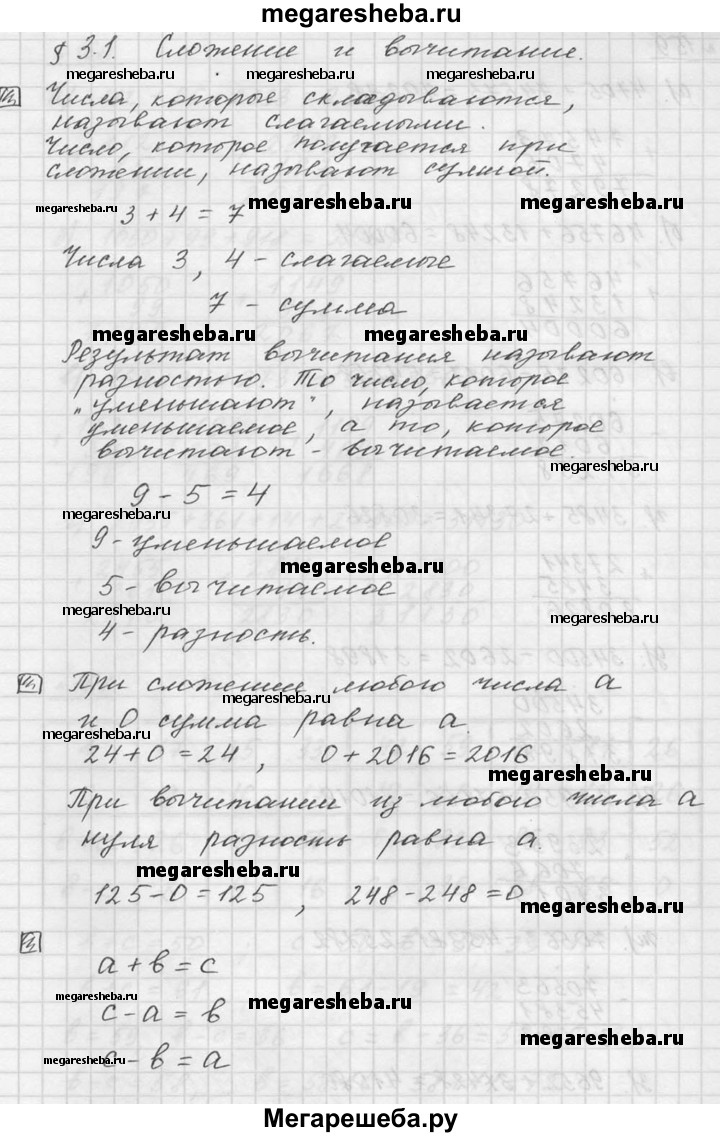 megaresheba.ru
§ 3.1. Сложение и вычитание.
megaresheba.ru megaresheba.ru megaresheba.ru
Числа, которые складываются,
называют слагаемыми.
megaresheba.ru megaresheba.ru
Число, которое получается при
сложении, называют суммой.
megaresheba.ru 3 + 4 = 7 megaresheba.ru megaresheba.ru
Числа 3, 4 - слагаемые
7 - сумма
megaresheba.ru megaresheba.ru
Результат вычитания называют
разностью. То число, которое
„уменьшают", называется
уменьшаемое, а то, которое
вычитают - вычитаемое.
megaresheba.ru
9 - 5 = 4
megaresheba.ru
9 - уменьшаемое
megaresheba.ru
5 - вычитаемое
megaresheba.ru megaresheba.ru
4 - разность.
При сложении любого числа a
megaresheba.ru
и 0 сумма равна a.
megaresheba.ru
24 + 0 = 24, 0 + 2016 = 2016
megaresheba.ru
При вычитании из любого числа a
нуля разность равна a.
megaresheba.ru
125 - 0 = 125, 248 - 248 = 0
megaresheba.ru
a + b = c
megaresheba.ru megaresheba.ru
c - a = b
megaresheba.ru megaresheba.ru
c - b = a
Мегарешеба.ру